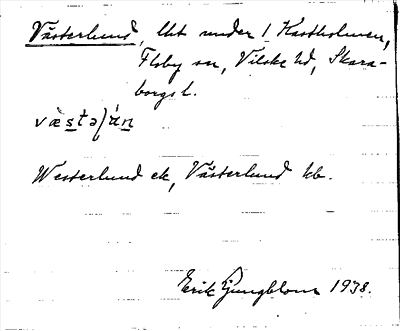 Västerlund, lht under 1 Kastholmen,
Floby sn, Vilske hd, Skara-
borgs l.
Westerlund ek, Västerlund kb.
Erik Ljungblom 1938.